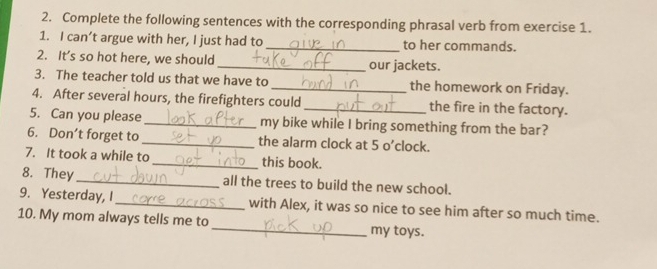 2. Complete the following sentences with the corresponding phrasal verb from exercise 1.
1. I can't argue with her, I just had to give in to her commands.
2. It's so hot here, we should take off our jackets.
3. The teacher told us that we have to hand in the homework on Friday.
4. After several hours, the firefighters could put out the fire in the factory.
5. Can you please look after my bike while I bring something from the bar?
6. Don't forget to set up the alarm clock at 5 o'clock.
7. It took a while to get into this book.
8. They cut down all the trees to build the new school.
9. Yesterday, I come across with Alex, it was so nice to see him after so much time.
10. My mom always tells me to pick up my toys.